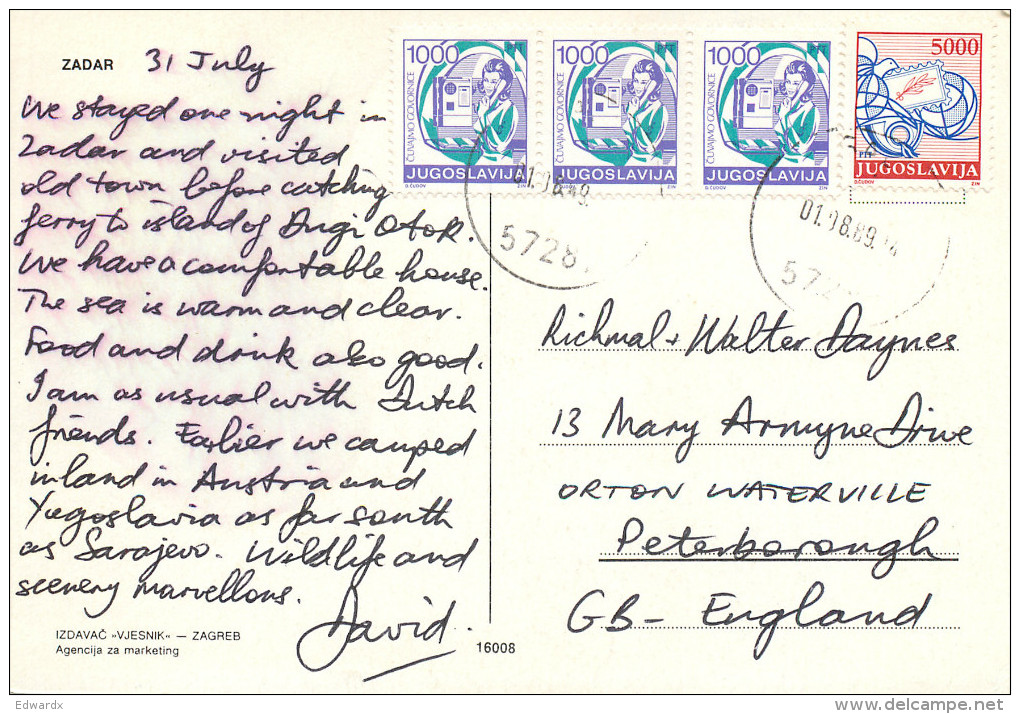 ZADAR 31 July
We stayed one night in
Zadar and visited
old town before catching
ferry to island of Dugi Otok.
We have a comfortable house.
The sea is warm and clear.
Food and drink also good.
I am as usual with Dutch
friends. Earlier we camped
inland in Austria and
Yugoslavia as far south
as Sarajevo. Wildlife and
scenery marvellous.
David.
IZDAVAČ »VJESNIK« — ZAGREB
Agencija za marketing
16008
1000 PTT
ČUVAJMO GOVORNICE
JUGOSLAVIJA
D.ČUDOV ZIN
1000 PTT
ČUVAJMO GOVORNICE
JUGOSLAVIJA
ZIN
1000 PTT
ČUVAJMO GOVORNICE
JUGOSLAVIJA
D.ČUDOV ZIN
5000
PTT
JUGOSLAVIJA
D.ČUDOV ZIN
5728
01.08.89
Richmal + Walter Daynes
13 Mary Armyne Drive
ORTON WATERVILLE
Peterborough
GB - England
Edwardx
delcampe.net